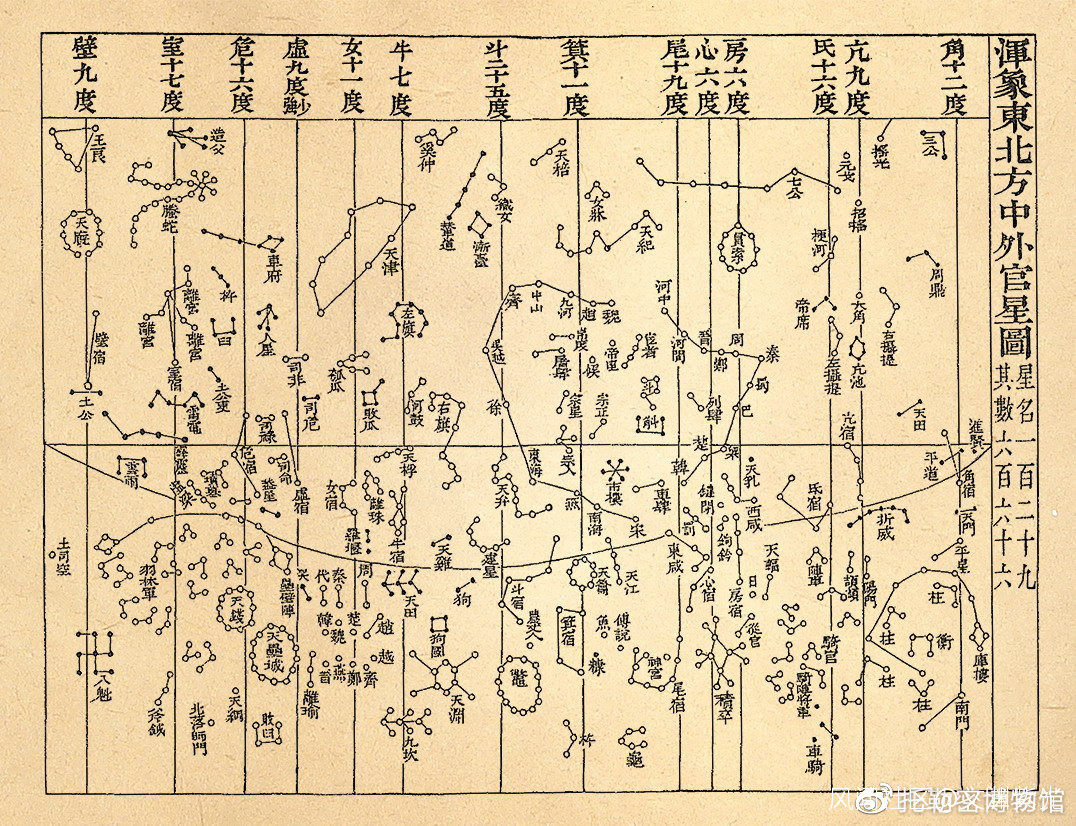 渾象東北方中外官星圖
星名一百二十九
其數六百六十六
角十二度
亢九度
氐十六度
房六度
心六度
尾十九度
箕十一度
斗二十五度
牛七度
女十一度
虛九度少強
危十六度
室十七度
壁九度
三公
搖光
元戈
招搖
周鼎
大角
右攝提
亢池
左攝提
帝席
梗河
七公
貫索
天紀
女牀
天棓
織女
漸臺
輦道
奚仲
天津
造父
螣蛇
車府
王良
天廄
杵
臼
人星
離宮
離宮
離宮
室宿
壁宿
土公
土公吏
雷電
雲雨
司非
司危
司祿
司命
危宿
墳墓
虛宿
瓠瓜
敗瓜
左旗
右旗
河鼓
天桴
女宿
離珠
牛宿
齊
中山
九河
趙
魏
吳越
徐
東海
燕
南海
宋
河中
河間
晉
鄭
周
秦
蜀
巴
梁
楚
韓
宦者
帝座
候
斗
斛
列肆
車肆
市樓
宗正
宗星
宗人
天田
進賢
平道
角宿
天門
平星
亢宿
折威
氐宿
天乳
西咸
鍵閉
鉤鈐
罰
東咸
心宿
房宿
日
從官
天輻
陣車
頡頏
陽門
騎官
騎陣將軍
車騎
積卒
柱
柱
柱
柱
衡
庫樓
南門
尾宿
神宮
天江
傅說
魚
天籥
箕宿
糠
杵
龜
斗宿
農丈人
鼈
建星
天弁
天雞
狗
狗國
天淵
天田
九坎
羅堰
周
秦
代
趙
越
齊
鄭
楚
魏
韓
燕
晉
哭
離瑜
壘壁陣
天壘城
敗臼
天錢
天綱
北落師門
羽林軍
斧鉞
八魁
土司空